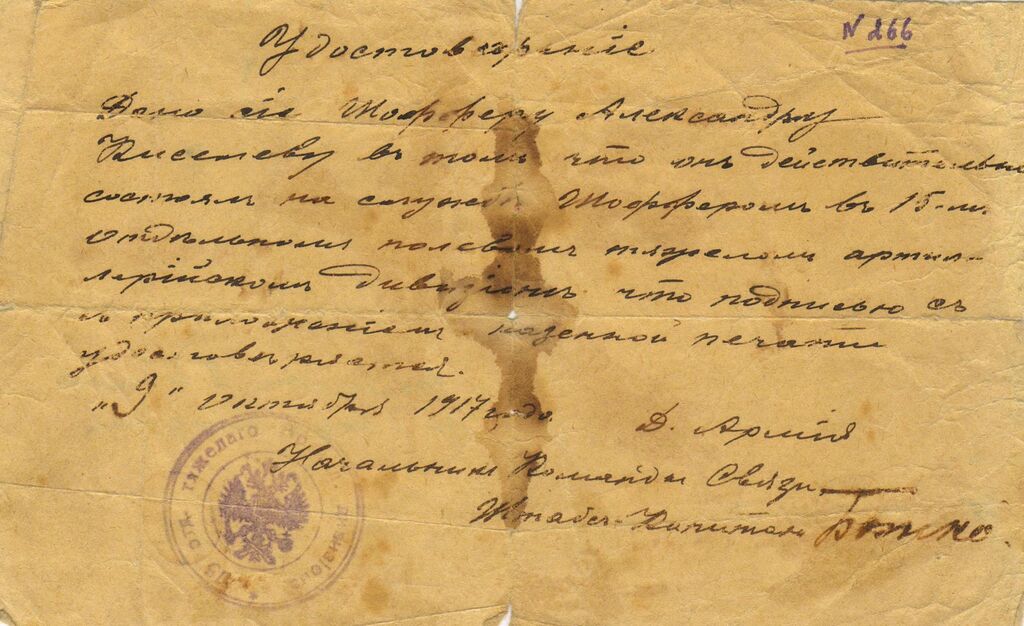 N 266
Удостоверение
Дано сіе Шофферу Александру
Киселеву въ томъ что онъ действительно
состоялъ на службѣ Шофферомъ въ 15-мъ
Отдѣльномъ полевомъ тяжеломъ артил-
лерійскомъ Дивизіонѣ что подписью съ
приложеніемъ казенной печати
удостовѣряется.
„9" Октября 1917 года. Д. Армія
Начальникъ Команды Связи
Штабсъ-Капитанъ
тяжелаго дивизіона